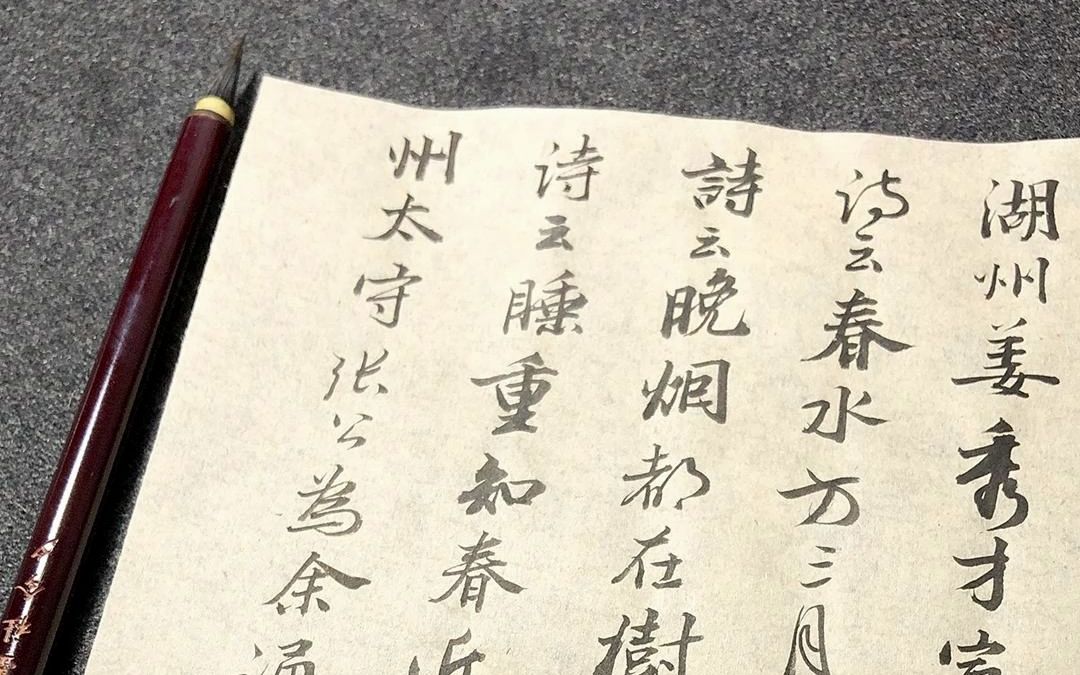 湖州姜秀才
诗云春水方二月
詩云晚烟都在樹
诗云睡重知春近
州太守张公為余